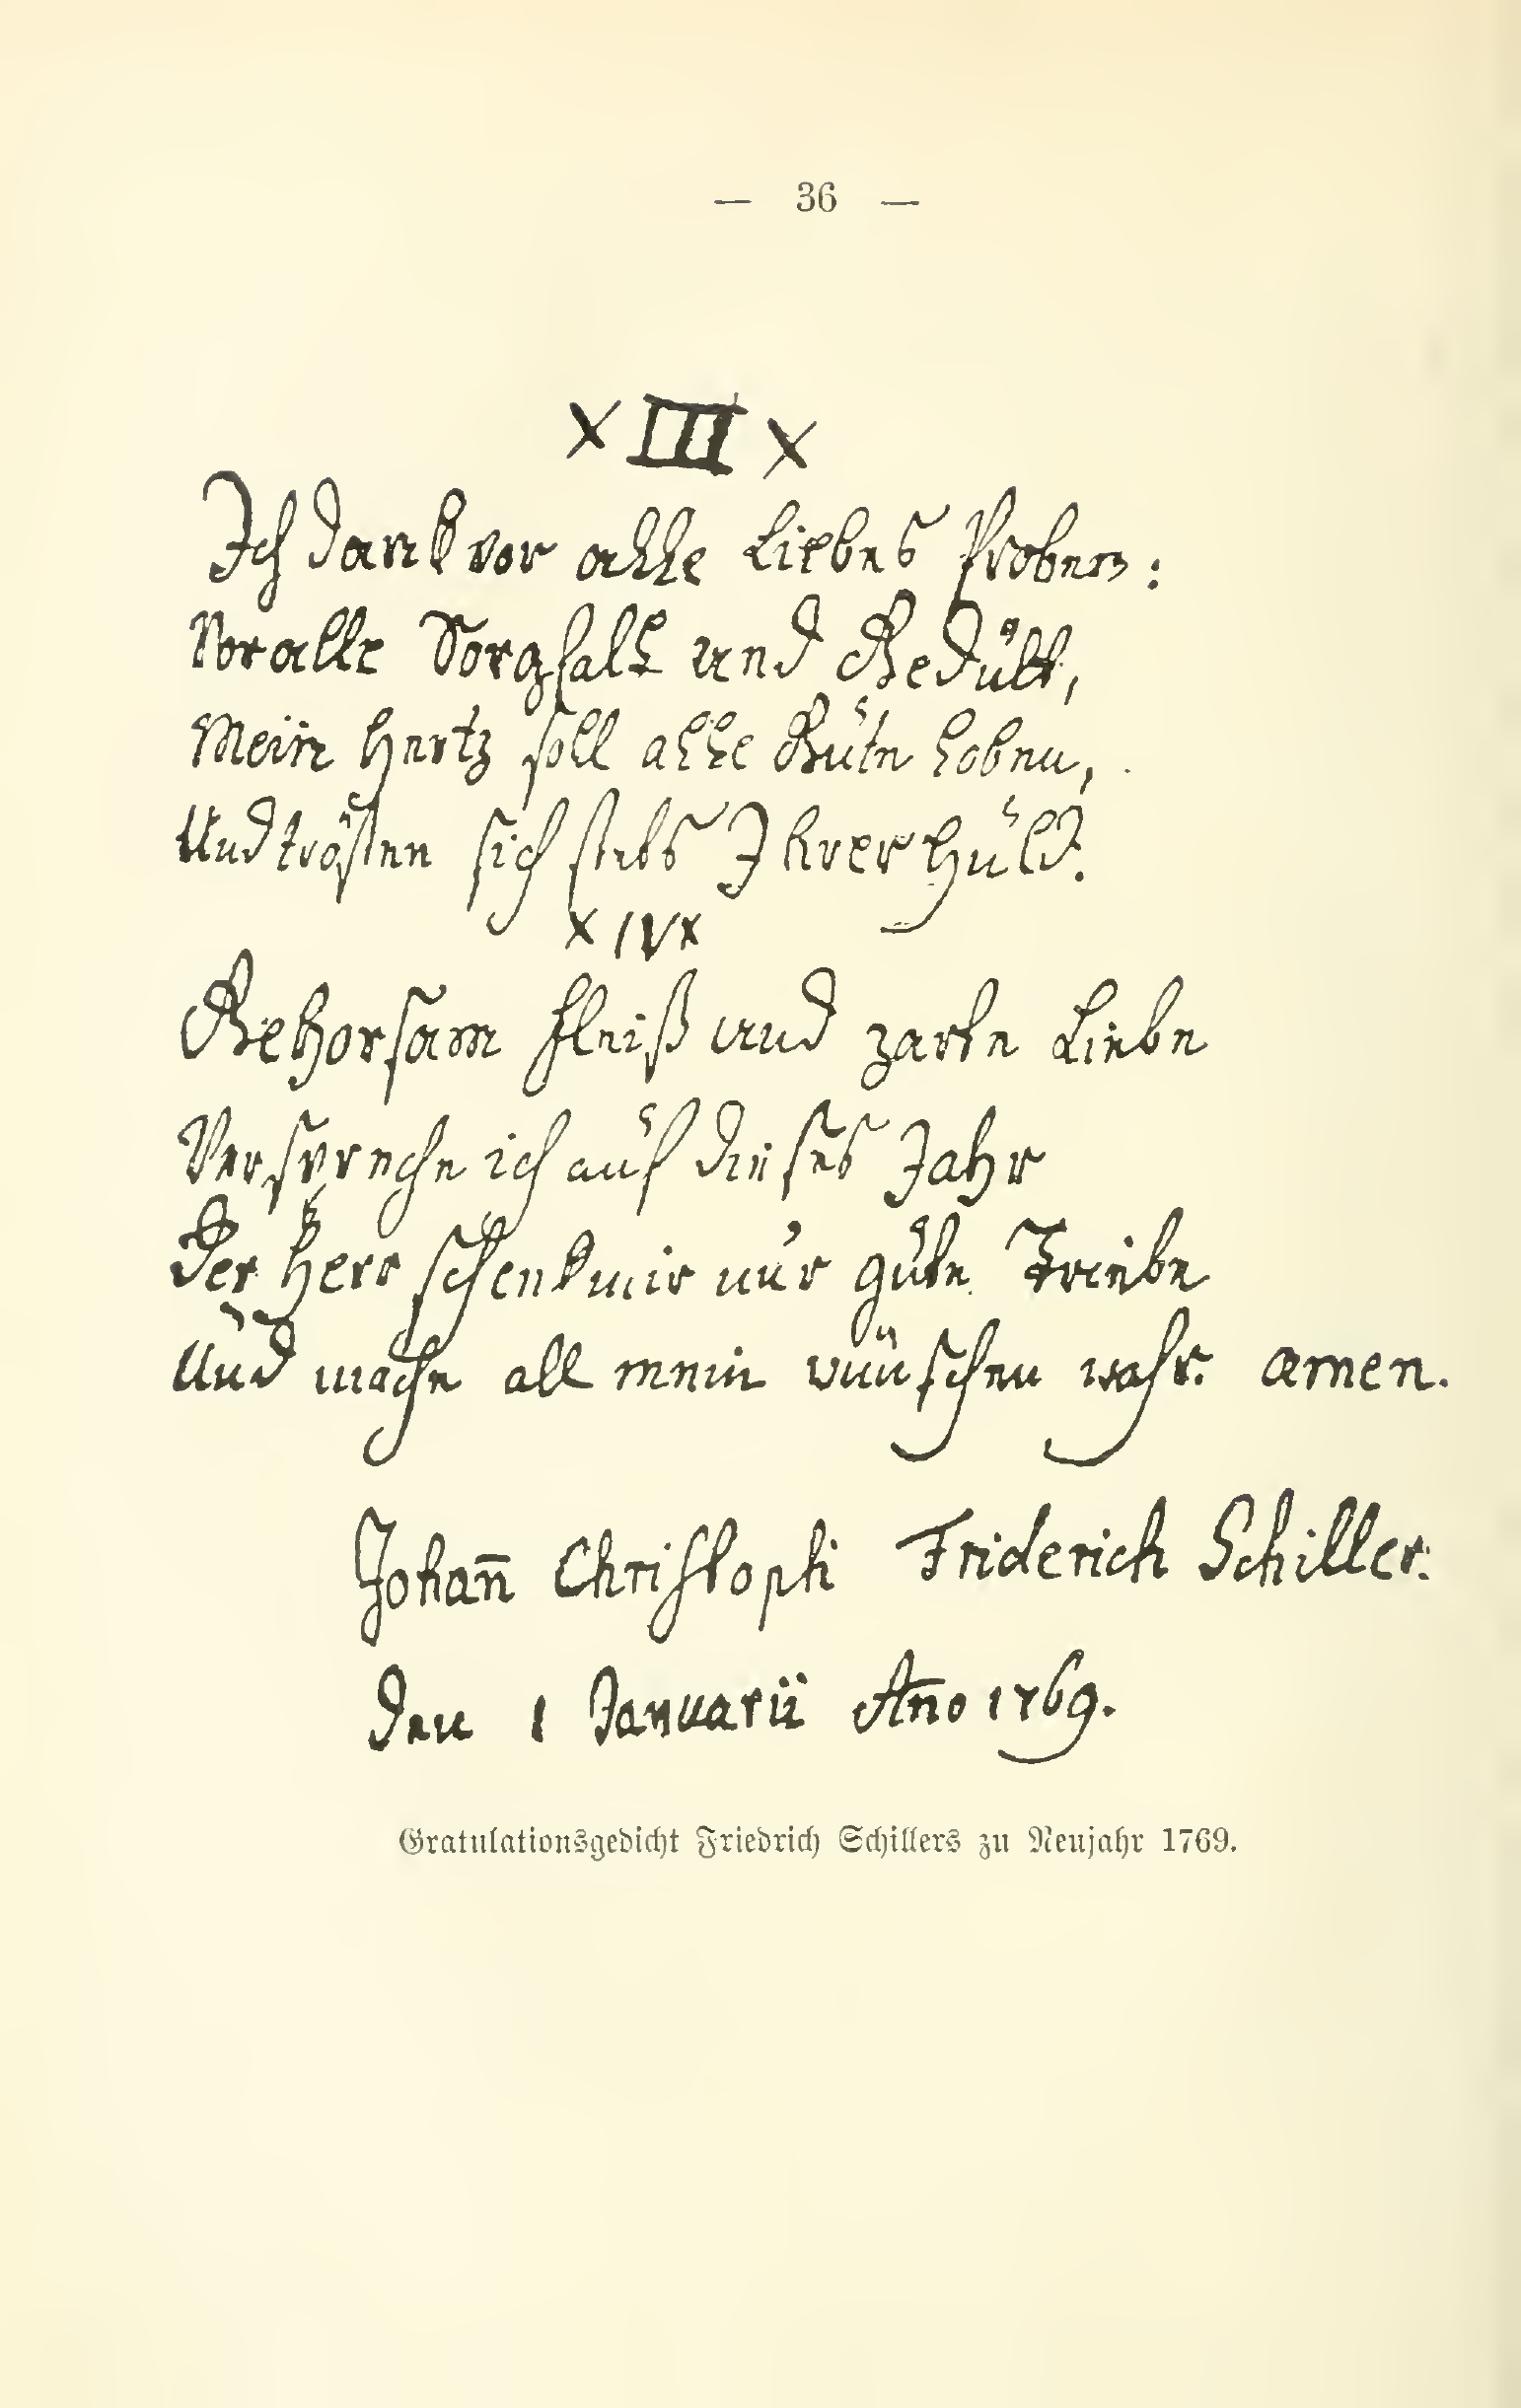 — 36 —
× III ×
Ich dank vor alle Liebes Proben:
Vor alle Sorgfalt und Gedult,
Mein Hertz soll alle Güte Loben,
Und trösten sich stets Ihrer Huld.
× IV ×
Gehorsam Fleiß und zarte Liebe
Verspreche ich auf dieses Jahr
Der Herr schenk mir nur gute Triebe
Und mache all mein wünschen wahr. amen.
Johan̄ Christoph Friderich Schiller.
Den 1 Januarii An̄o 1769.
Gratulationsgedicht Friedrich Schillers zu Neujahr 1769.